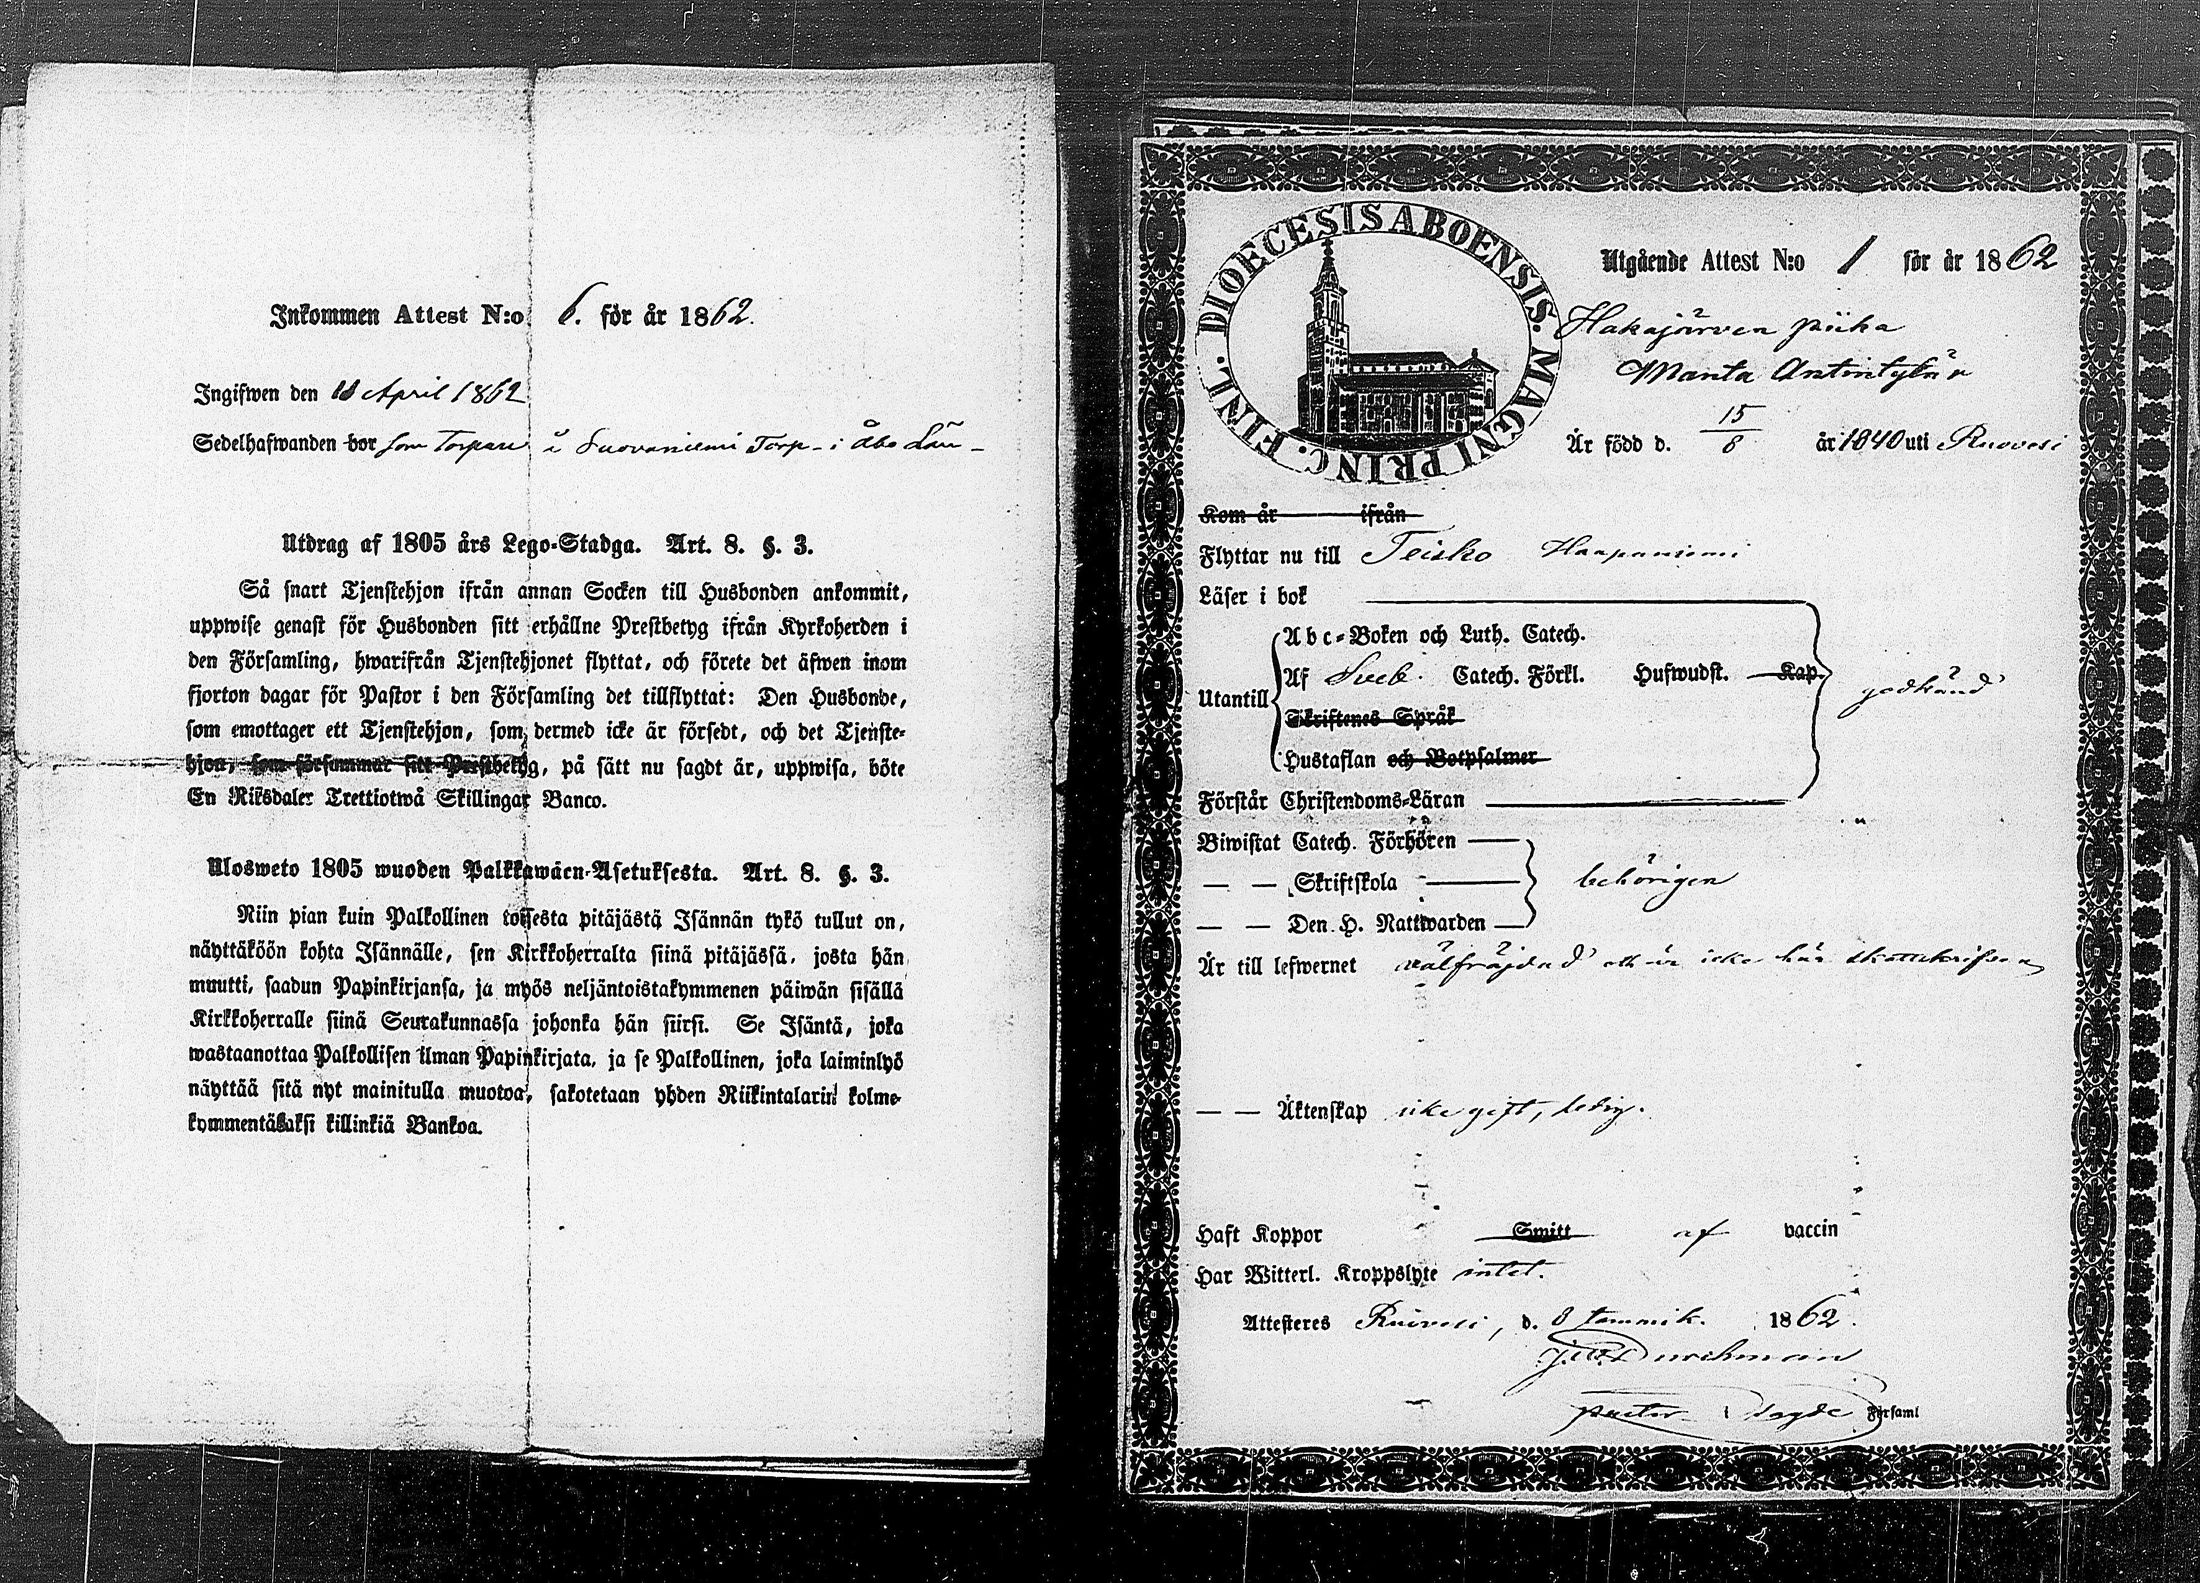 Inkommen Attest N:o 6. för år 1862.
Ingifwen den 18 April 1862
Sedelhafwanden bor som Torpare å Suovaniemi Torp i Åbo Län
Utdrag af 1805 års Lego-Stadga. Art. 8. §. 3.
Så snart Tjenstehjon ifrån annan Socken till Husbonden ankommit,
uppwise genast för Husbonden sitt erhållne Prestbetyg ifrån Kyrkoherden i
den Församling, hwarifrån Tjenstehjonet flyttat, och förete det äfwen inom
fjorton dagar för Pastor i den Församling det tillflyttat: Den Husbonde,
som emottager ett Tjenstehjon, som dermed icke är försedt, och det Tjenste-
hjon, som försummar sitt Prestbetyg, på sätt nu sagdt är, uppwisa, böte
En Riksdaler Trettiotwå Skillingar Banco.
Ulosweto 1805 wuoden Palkkawäen-Asetuksesta. Art. 8. §. 3.
Niin pian kuin Palkollinen toisesta pitäjästä Isännän tykö tullut on,
näyttäköön kohta Isännälle, sen Kirkkoherralta siinä pitäjässä, josta hän
muutti, saadun Papinkirjansa, ja myös neljäntoistakymmenen päiwän sisällä
Kirkkoherralle siinä Seurakunnassa johonka hän siirsi. Se Isäntä, joka
wastaanottaa Palkollisen ilman Papinkirjata, ja se Palkollinen, joka laiminlyö
näyttää sitä nyt mainitulla muotoa, sakotetaan yhden Riikintalarin kolme-
kymmentäkaksi killinkiä Bankoa.
DIOECESIS ABOENSIS. MAGNI PRINC. FINL.
Utgående Attest N:o 1 för år 1862
Hakajärven piika
Manta Antintytär
Är född d. 15/8 år 1840 uti Ruovesi
Kom år ifrån
Flyttar nu till Teisko Haapaniemi
Läser i bok
Abc-Boken och Luth. Catech.
Utantill Af Sveb. Catech. Förkl. Hufwudst. Kap. godkänd
Skriftenes Språk
Hustaflan och Botpsalmer
Förstår Christendoms-Läran
Biwistat Catech. Förhören
— — Skriftskola behörigen
— — Den H. Nattwarden
Är till lefwernet välfräjdad och är icke här skattskrifven
— — Äktenskap icke gift, ledig.
Haft Koppor Smitt af vaccin
Har Witterl. Kroppslyte intet.
Attesteres Ruovesi, d. 8 tammik. 1862.
Församl